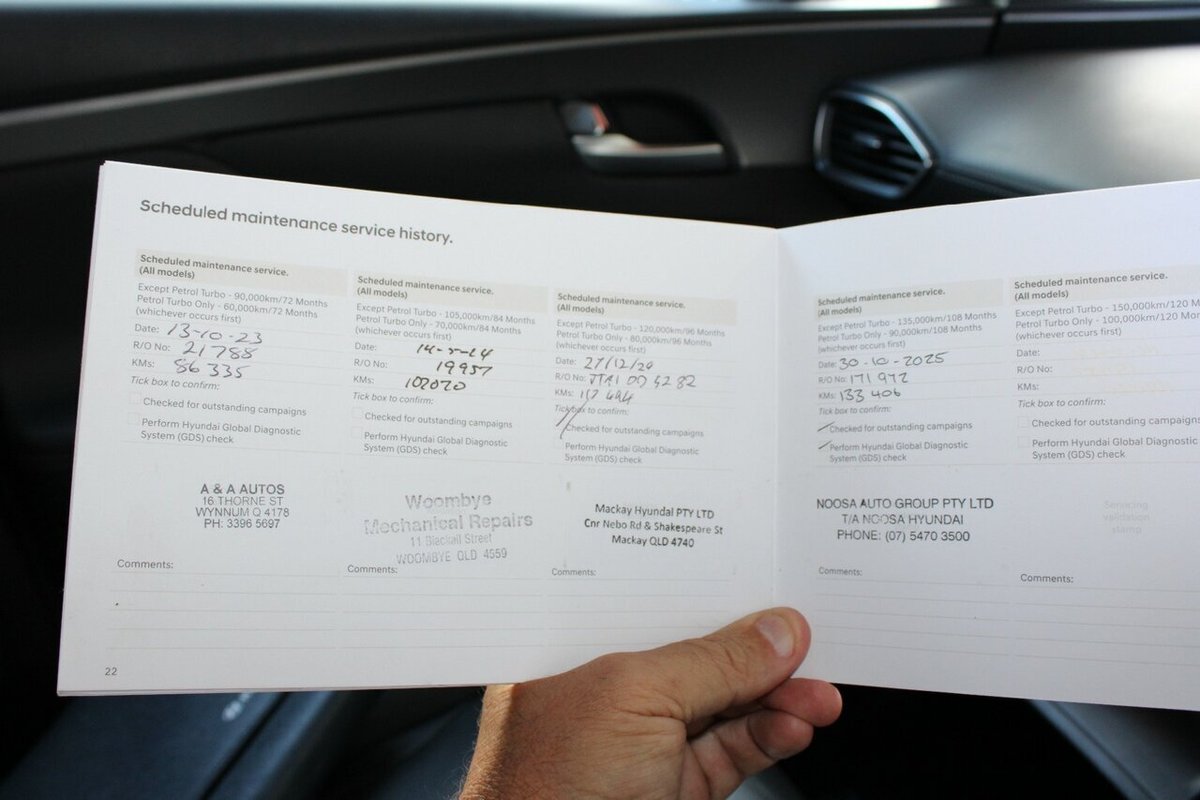 Scheduled maintenance service history.
Scheduled maintenance service.
(All models)
Except Petrol Turbo - 90,000km/72 Months
Petrol Turbo Only - 60,000km/72 Months
(whichever occurs first)
Date: 13-10-23
R/O No: 21788
KMs: 86 335
Tick box to confirm:
Checked for outstanding campaigns
Perform Hyundai Global Diagnostic
System (GDS) check
A & A AUTOS
16 THORNE ST
WYNNUM Q 4178
PH: 3396 5697
Comments:
22
Scheduled maintenance service.
(All models)
Except Petrol Turbo - 105,000km/84 Months
Petrol Turbo Only - 70,000km/84 Months
(whichever occurs first)
Date: 14-5-24
R/O No: 19957
KMs: 102020
Tick box to confirm:
Checked for outstanding campaigns
Perform Hyundai Global Diagnostic
System (GDS) check
Woombye
Mechanical Repairs
11 Blackall Street
WOOMBYE QLD 4559
Comments:
Scheduled maintenance service.
(All models)
Except Petrol Turbo - 120,000km/96 Months
Petrol Turbo Only - 80,000km/96 Months
(whichever occurs first)
Date: 27/12/24
R/O No:
KMs:
Tick box to confirm:
Checked for outstanding campaigns
Perform Hyundai Global Diagnostic
System (GDS) check
Mackay Hyundai PTY LTD
Cnr Nebo Rd & Shakespeare St
Mackay QLD 4740
Comments:
Scheduled maintenance service.
(All models)
Except Petrol Turbo - 135,000km/108 Months
Petrol Turbo Only - 90,000km/108 Months
(whichever occurs first)
Date: 30-10-2025
R/O No: 171 972
KMs: 133 406
Tick box to confirm:
Checked for outstanding campaigns
Perform Hyundai Global Diagnostic
System (GDS) check
NOOSA AUTO GROUP PTY LTD
T/A NOOSA HYUNDAI
PHONE: (07) 5470 3500
Comments:
Scheduled maintenance service.
(All models)
Except Petrol Turbo - 150,000km/120 M
Petrol Turbo Only - 100,000km/120 Mon
(whichever occurs first)
Date:
R/O No:
KMs:
Tick box to confirm:
Checked for outstanding campaigns
Perform Hyundai Global Diagnostic
System (GDS) check
Servicing
validation
stamp
Comments: